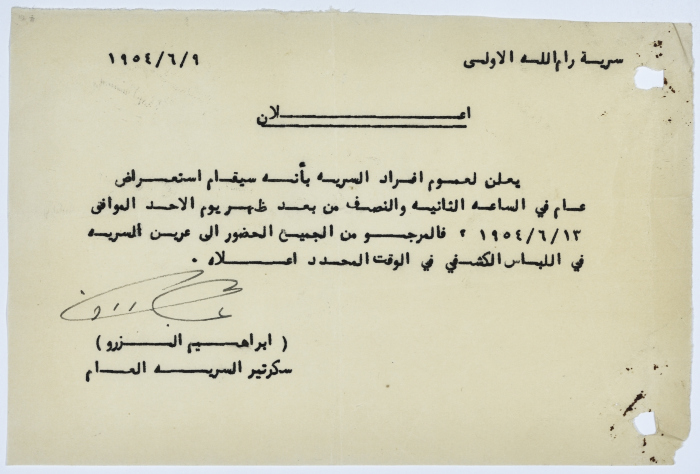 سرية رام الله الاولى
١٩٥٤/٦/٩
اعـــــــلان
يعلن لعموم افراد السريه بأنه سيقام استعراض
عام في الساعه الثانيه والنصف من بعد ظهر يوم الاحد الموافق
١٩٥٤/٦/١٣ ، فالمرجو من الجميع الحضور الى عرين السريه
في اللباس الكشفي في الوقت المحدد اعلاه .
( ابراهيم الزرو )
سكرتير السريه العام